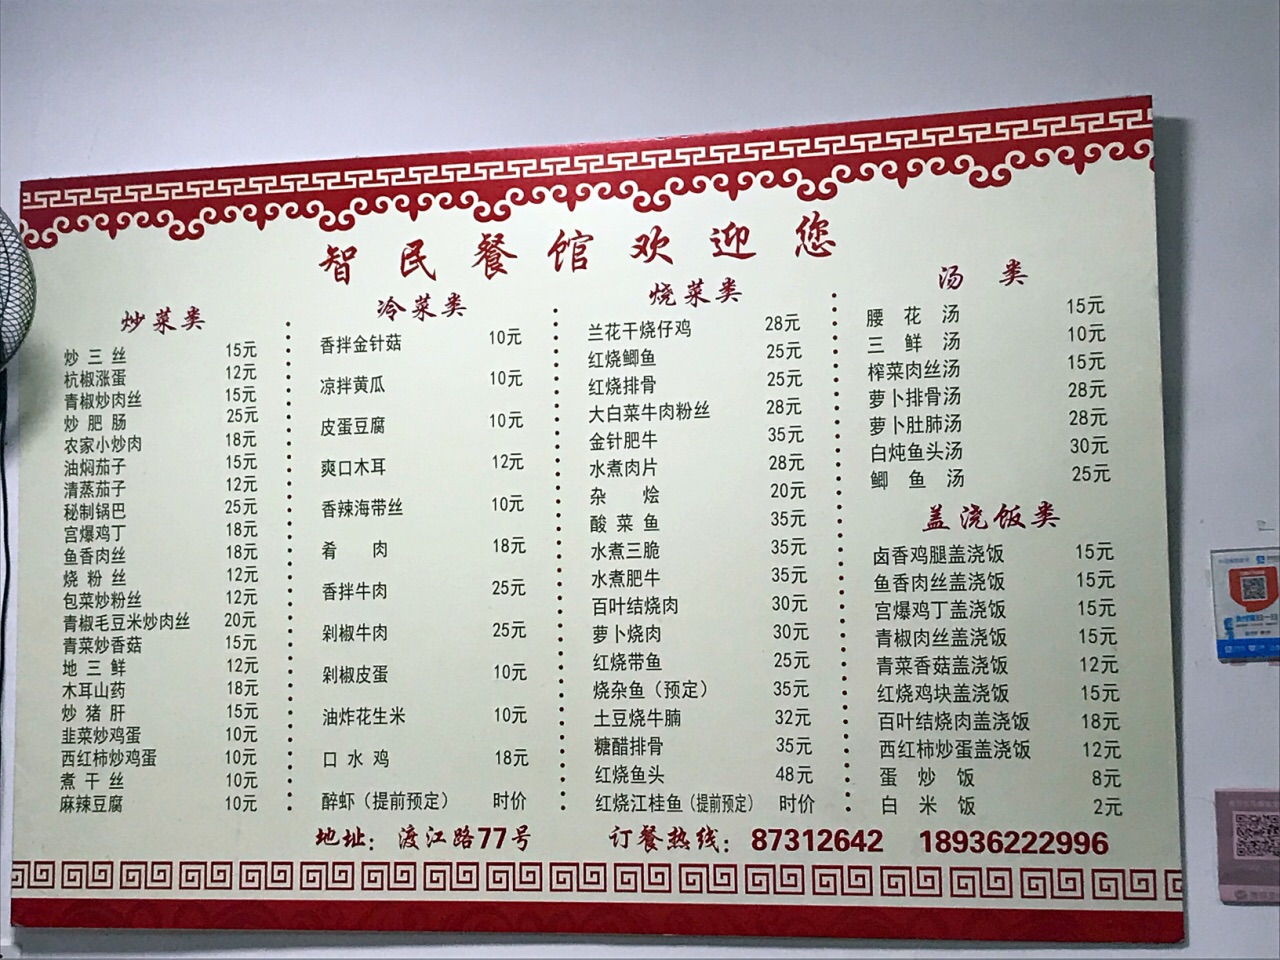 智民餐馆欢迎您
炒菜类
炒三丝 15元
杭椒涨蛋 12元
青椒炒肉丝 15元
炒肥肠 25元
农家小炒肉 18元
油焖茄子 15元
清蒸茄子 12元
秘制锅巴 25元
宫爆鸡丁 18元
鱼香肉丝 18元
烧粉丝 12元
包菜炒粉丝 12元
青椒毛豆米炒肉丝 20元
青菜炒香菇 15元
地三鲜 12元
木耳山药 18元
炒猪肝 15元
韭菜炒鸡蛋 10元
西红柿炒鸡蛋 10元
煮干丝 10元
麻辣豆腐 10元
冷菜类
香拌金针菇 10元
凉拌黄瓜 10元
皮蛋豆腐 10元
爽口木耳 12元
香辣海带丝 10元
肴肉 18元
香拌牛肉 25元
剁椒牛肉 25元
剁椒皮蛋 10元
油炸花生米 10元
口水鸡 18元
醉虾（提前预定） 时价
烧菜类
兰花干烧仔鸡 28元
红烧鲫鱼 25元
红烧排骨 25元
大白菜牛肉粉丝 28元
金针肥牛 35元
水煮肉片 28元
杂烩 20元
酸菜鱼 35元
水煮三脆 35元
水煮肥牛 35元
百叶结烧肉 30元
萝卜烧肉 30元
红烧带鱼 25元
烧杂鱼（预定） 35元
土豆烧牛腩 32元
糖醋排骨 35元
红烧鱼头 48元
红烧江桂鱼（提前预定） 时价
汤类
腰花汤 15元
三鲜汤 10元
榨菜肉丝汤 15元
萝卜排骨汤 28元
萝卜肚肺汤 28元
白炖鱼头汤 30元
鲫鱼汤 25元
盖浇饭类
卤香鸡腿盖浇饭 15元
鱼香肉丝盖浇饭 15元
宫爆鸡丁盖浇饭 15元
青椒肉丝盖浇饭 15元
青菜香菇盖浇饭 12元
红烧鸡块盖浇饭 15元
百叶结烧肉盖浇饭 18元
西红柿炒蛋盖浇饭 12元
蛋炒饭 8元
白米饭 2元
地址：渡江路77号 订餐热线：87312642 18936222996